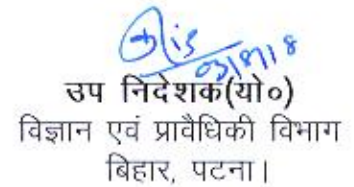 03/9/18
उप निदेशक(यो०)
विज्ञान एवं प्रावैधिकी विभाग
बिहार, पटना।